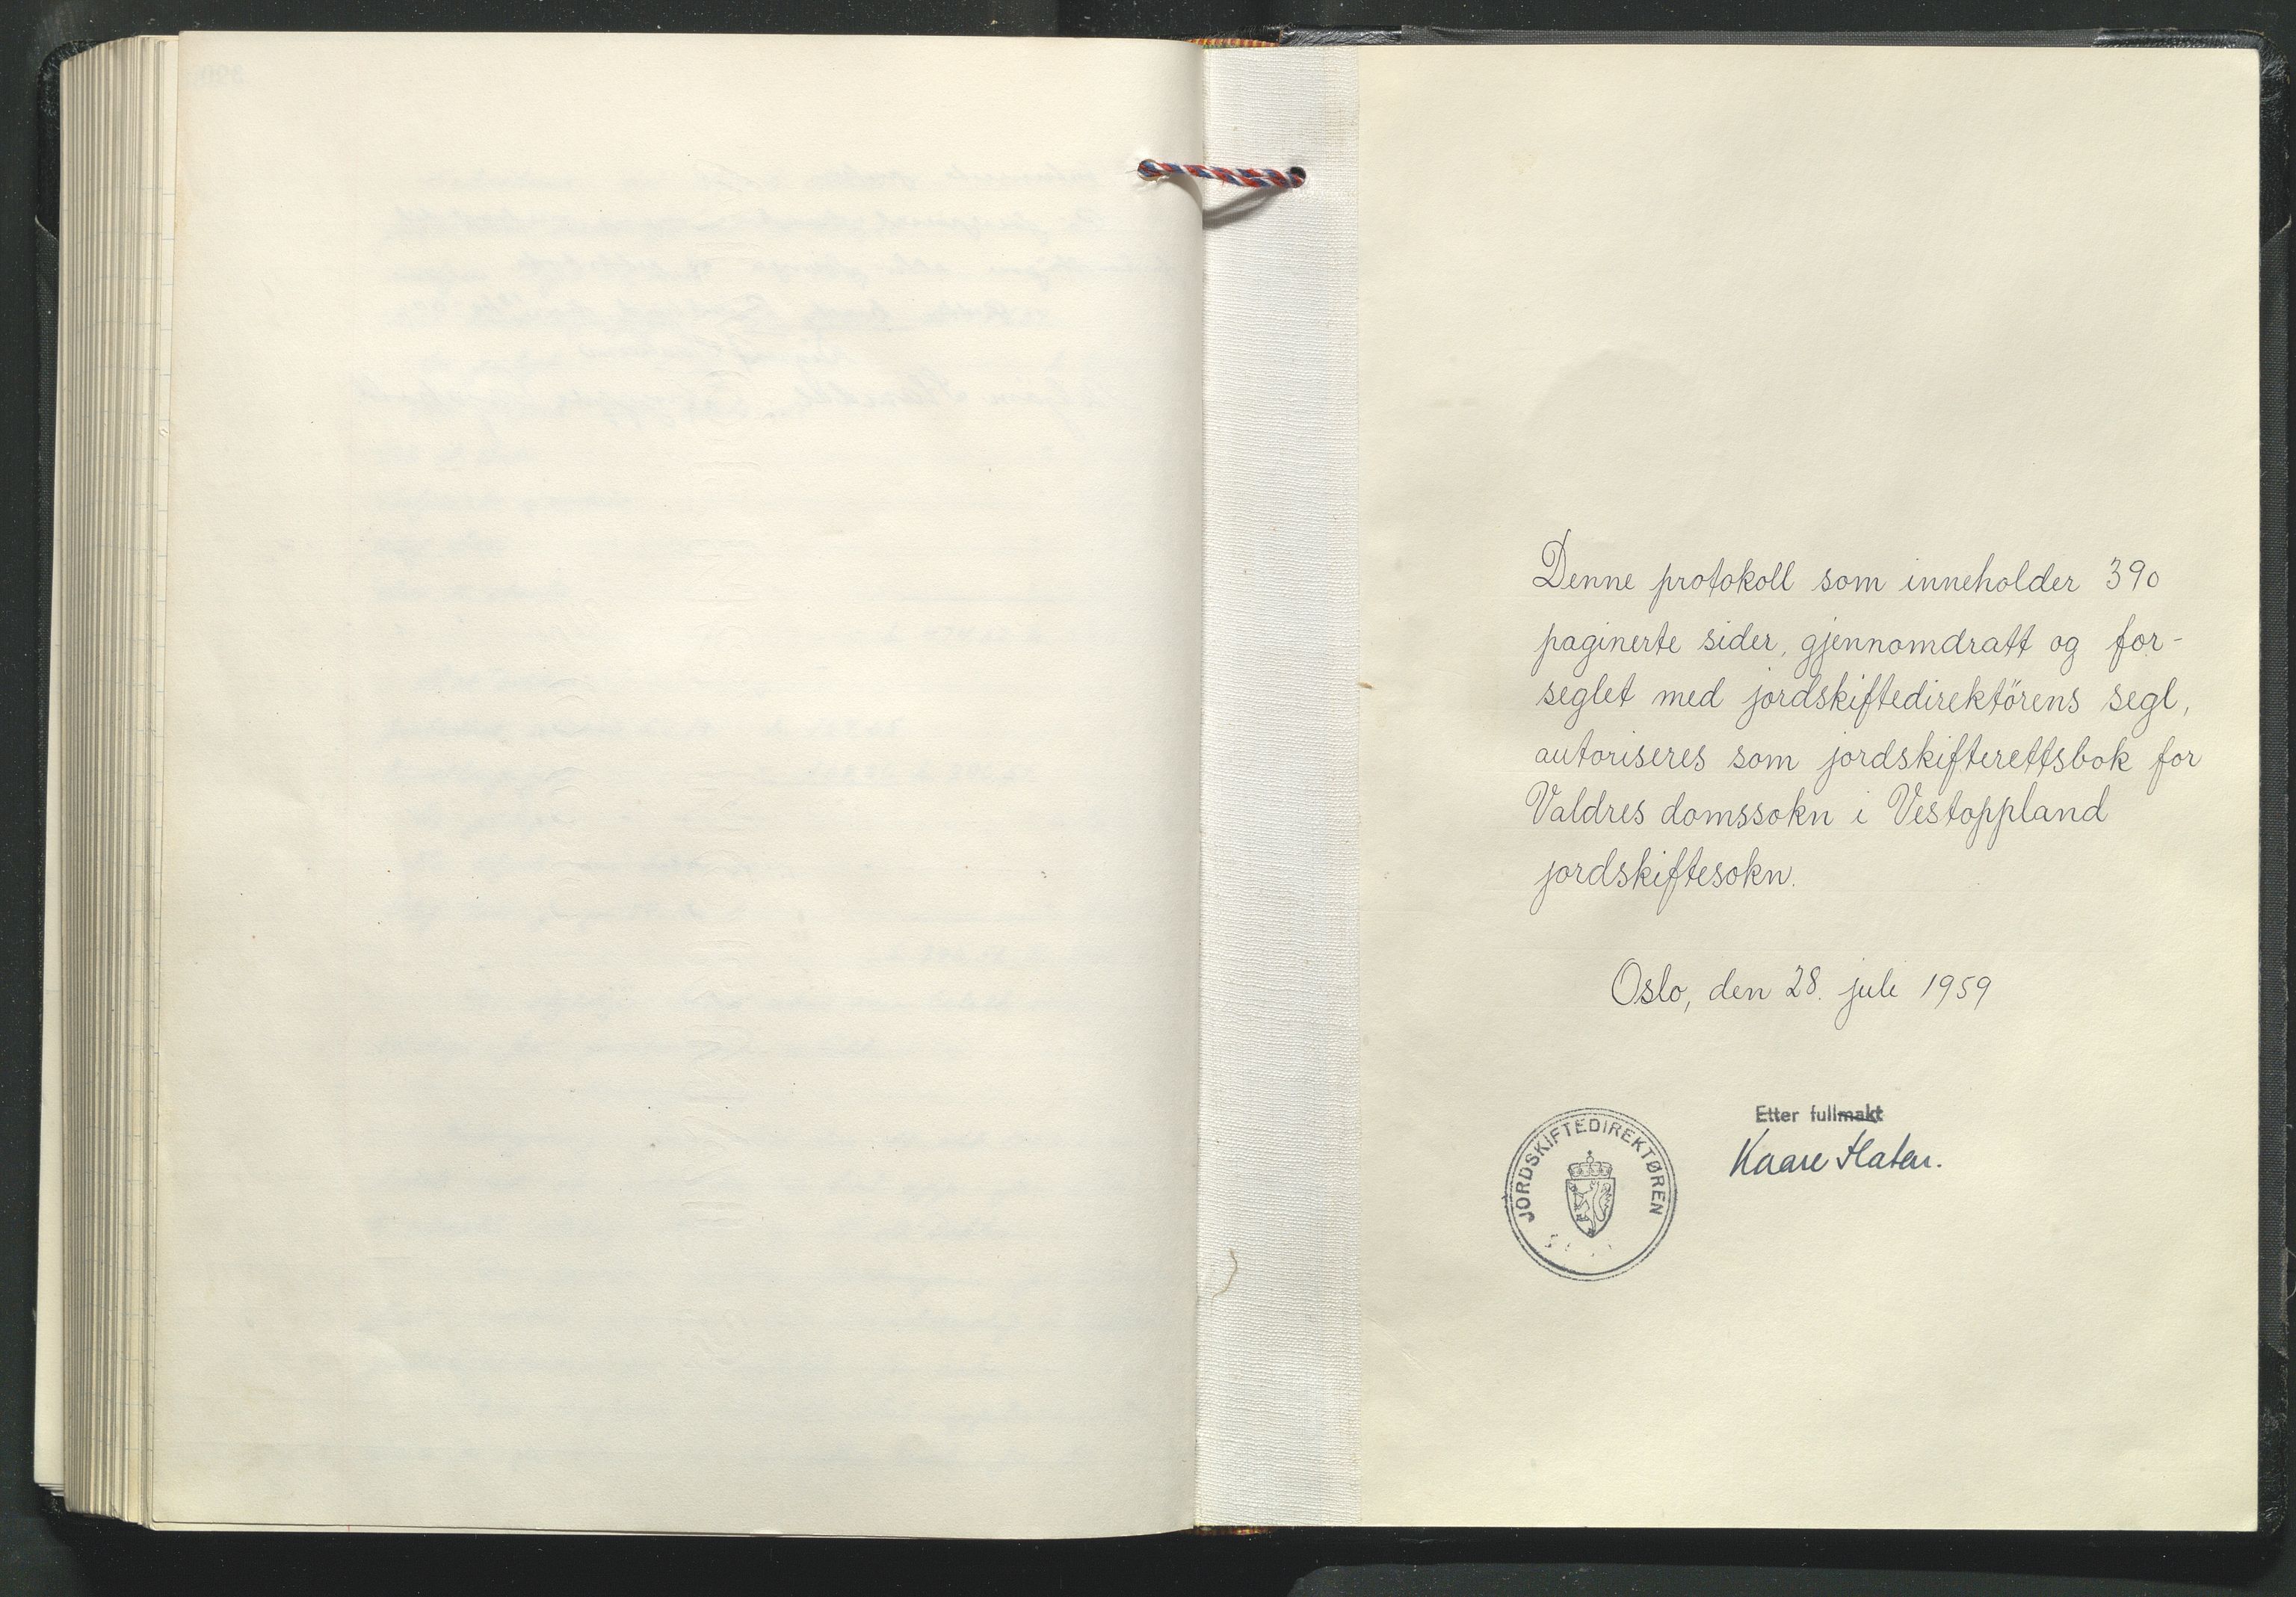 Denne protokoll som inneholder 390
paginerte sider, gjennomdratt og for-
seglet med jordskiftedirektörens segl,
autoriseres som jordskifterettsbok for
Valdres domssokn i Vestoppland
jordskiftesokn.
Oslo, den 28. juli 1959
Etter fullmakt
Kaare
JORDSKIFTEDIREKTØREN